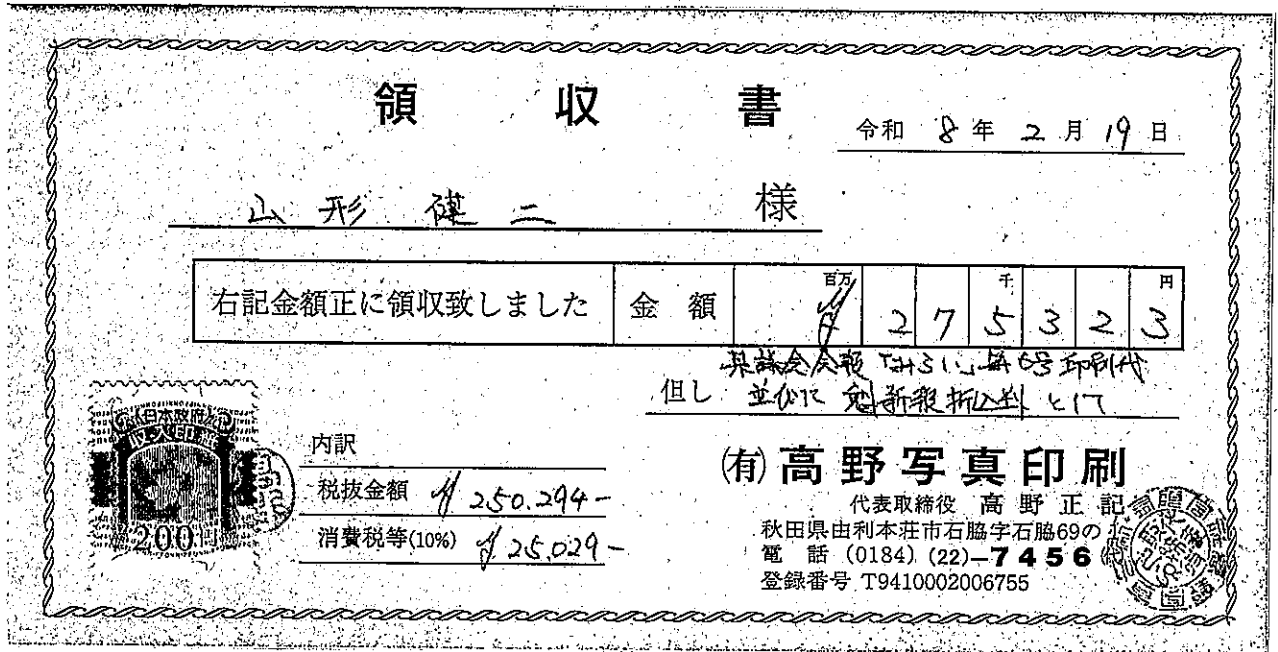 領収書
令和 8年 2月 19日
山形健二 様
右記金額正に領収致しました 金額 百万 ¥275千323円
県議会会報 号印刷代
但し 並びに 魁新報折込料 として
日本政府
収入印紙
200円
内訳
税抜金額 ¥250.294-
消費税等(10%) ¥25.029-
(有)高野写真印刷
代表取締役 高野正記
秋田県由利本荘市石脇字石脇69の
電話 (0184) (22)-7456
登録番号 T9410002006755